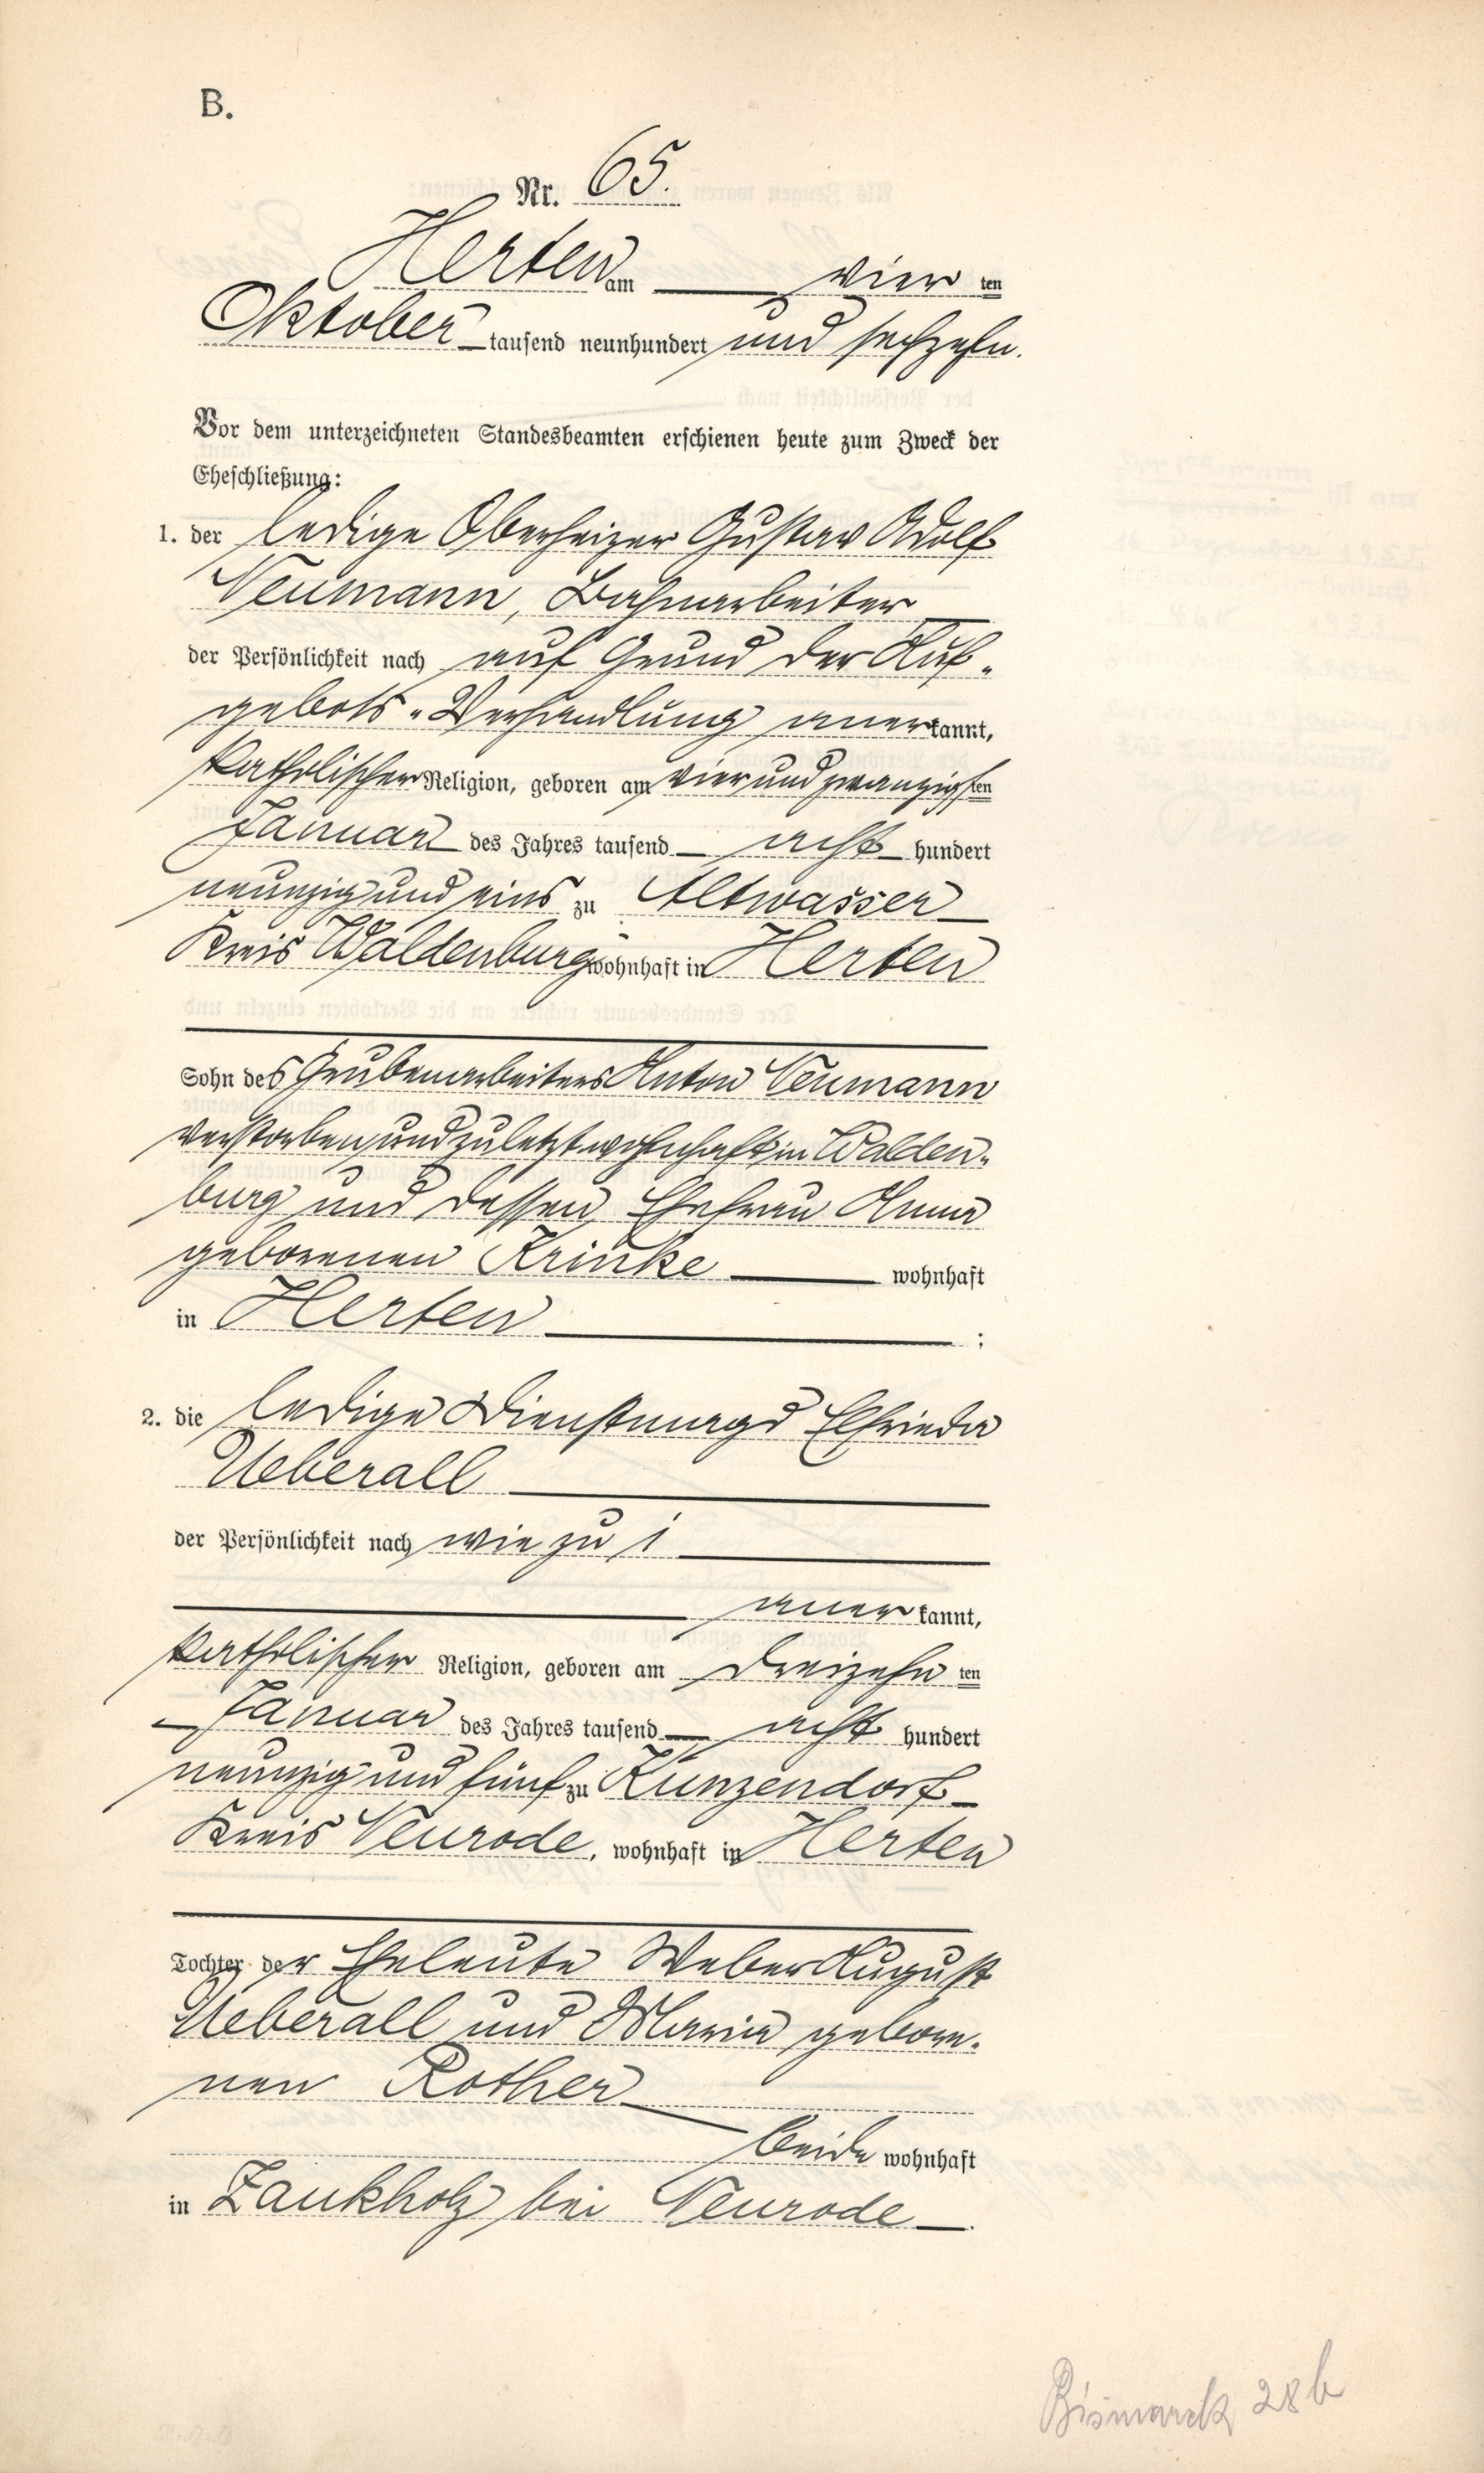 B.
Nr. 65.
Herten am vier ten
Oktober tausend neunhundert und sechzehn.
Vor dem unterzeichneten Standesbeamten erschienen heute zum Zweck der
Eheschließung:
1. der ledige Oberheizer Gustav Adolf
Neumann, Bahnarbeiter
der Persönlichkeit nach auf Grund der Auf-
gebots-Verhandlung anerkannt,
katholischer Religion, geboren am vierundzwanzigsten
Januar des Jahres tausend acht hundert
neunzig und eins zu Altwasser
Kreis Waldenburg wohnhaft in Herten
Sohn des Grubenarbeiters Anton Neumann
verstorben und zuletzt wohnhaft in Walden-
burg und dessen Ehefrau Anna
geborenen Krinke wohnhaft
in Herten ;
2. die ledige Dienstmagd Elfrieda
Ueberall
der Persönlichkeit nach wie zu 1
anerkannt,
katholischer Religion, geboren am dreizehn ten
Januar des Jahres tausend acht hundert
neunzig und fünf zu Kunzendorf
Kreis Neurode, wohnhaft in Herten
Tochter der Eheleute Weber August
Ueberall und Maria gebore-
nen Rother
beide wohnhaft
in Zaukholz bei Neurode.
Bismarck 28b